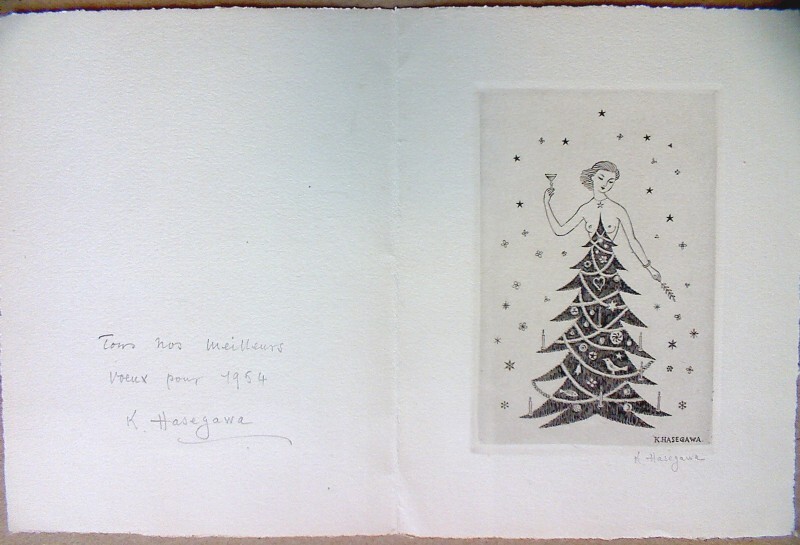 Tous nos meilleurs
voeux pour 1954
K. Hasegawa
K.HASEGAWA.
K Hasegawa